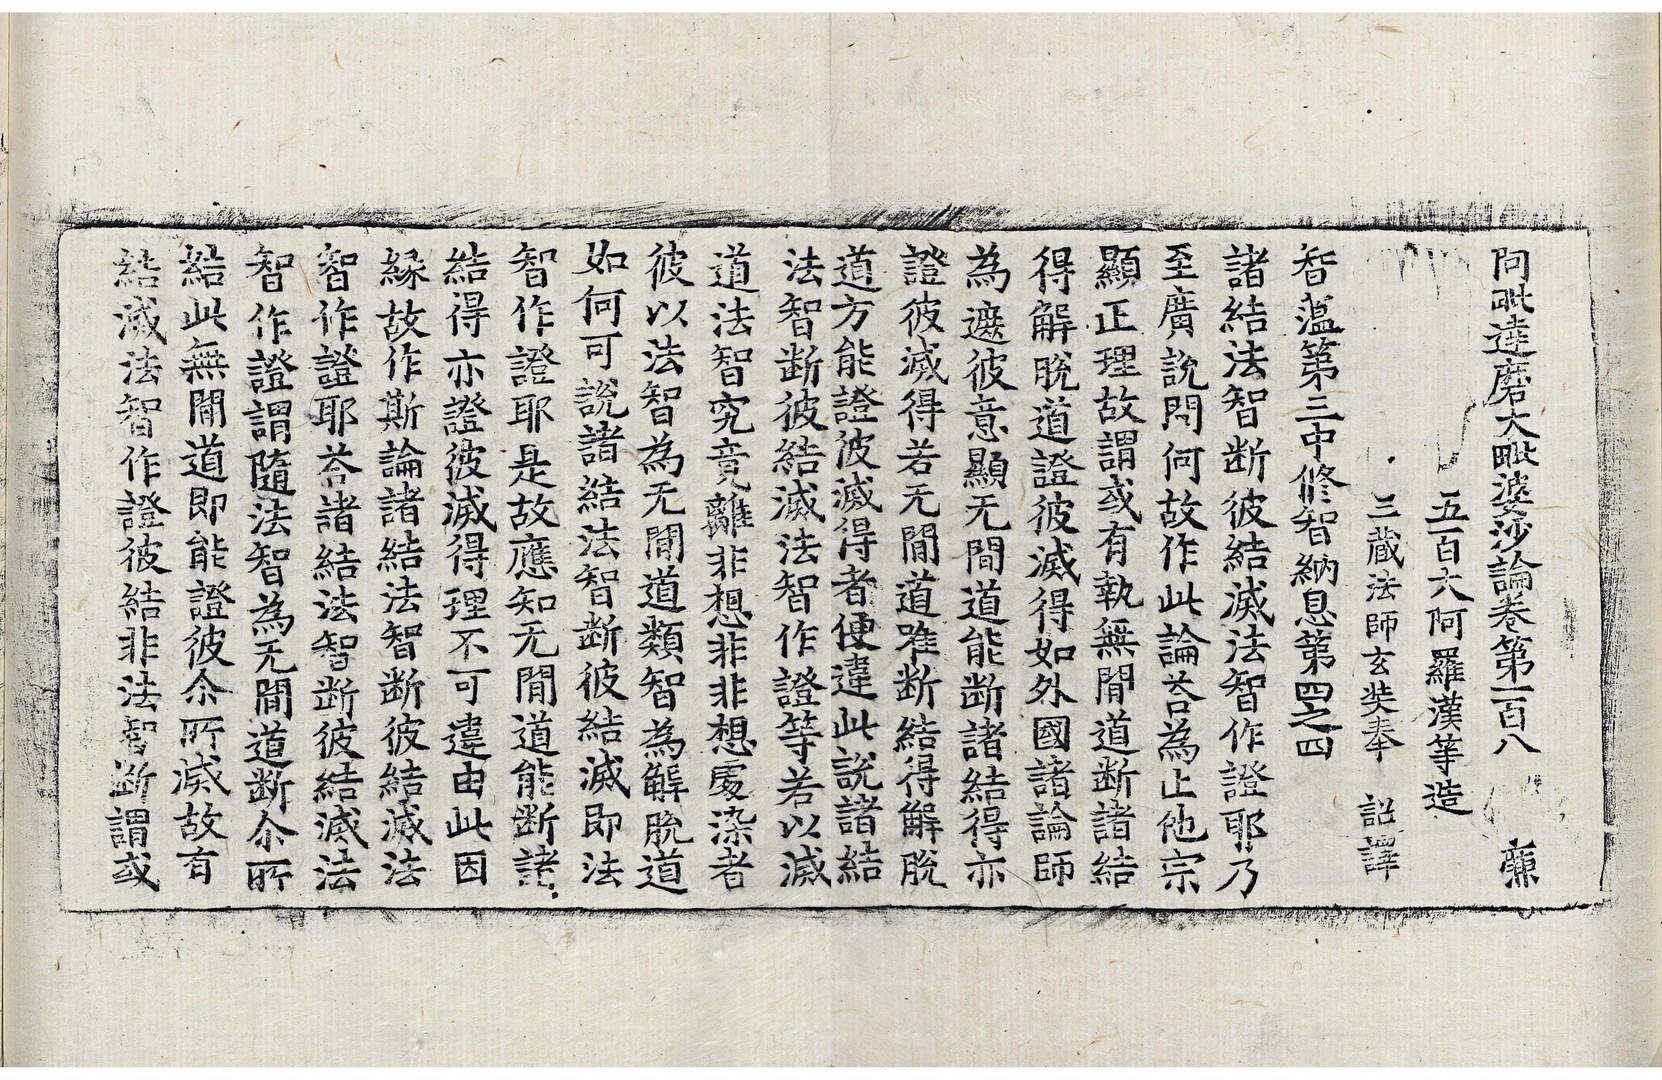 阿毗達磨大毗婆沙論卷第一百八　廉
五百大阿羅漢等造
三藏法師玄奘奉　詔譯
智蕰第三中修智納息第四之四
諸結法智断彼結滅法智作證耶乃
至廣說問何故作此論荅為止他宗
顯正理故謂或有執無閒道断諸結
得解脫道證彼滅得如外國諸論師
為遮彼意顯无閒道能断諸結得亦
證彼滅得若无閒道唯断結得解脫
道方能證彼滅得者便違此說諸結
法智断彼結滅法智作證等若以滅
道法智究竟離非想非非想處染者
彼以法智為无閒道類智為解脫道
如何可說諸結法智断彼結滅即法
智作證耶是故應知无閒道能断諸
結得亦證彼滅得理不可違由此因
緣故作斯論諸結法智断彼結滅法
智作證耶荅諸結法智断彼結滅法
智作證謂隨法智為无閒道断尒所
結此無閒道即能證彼尒所滅故有
結滅法智作證彼結非法智断謂或